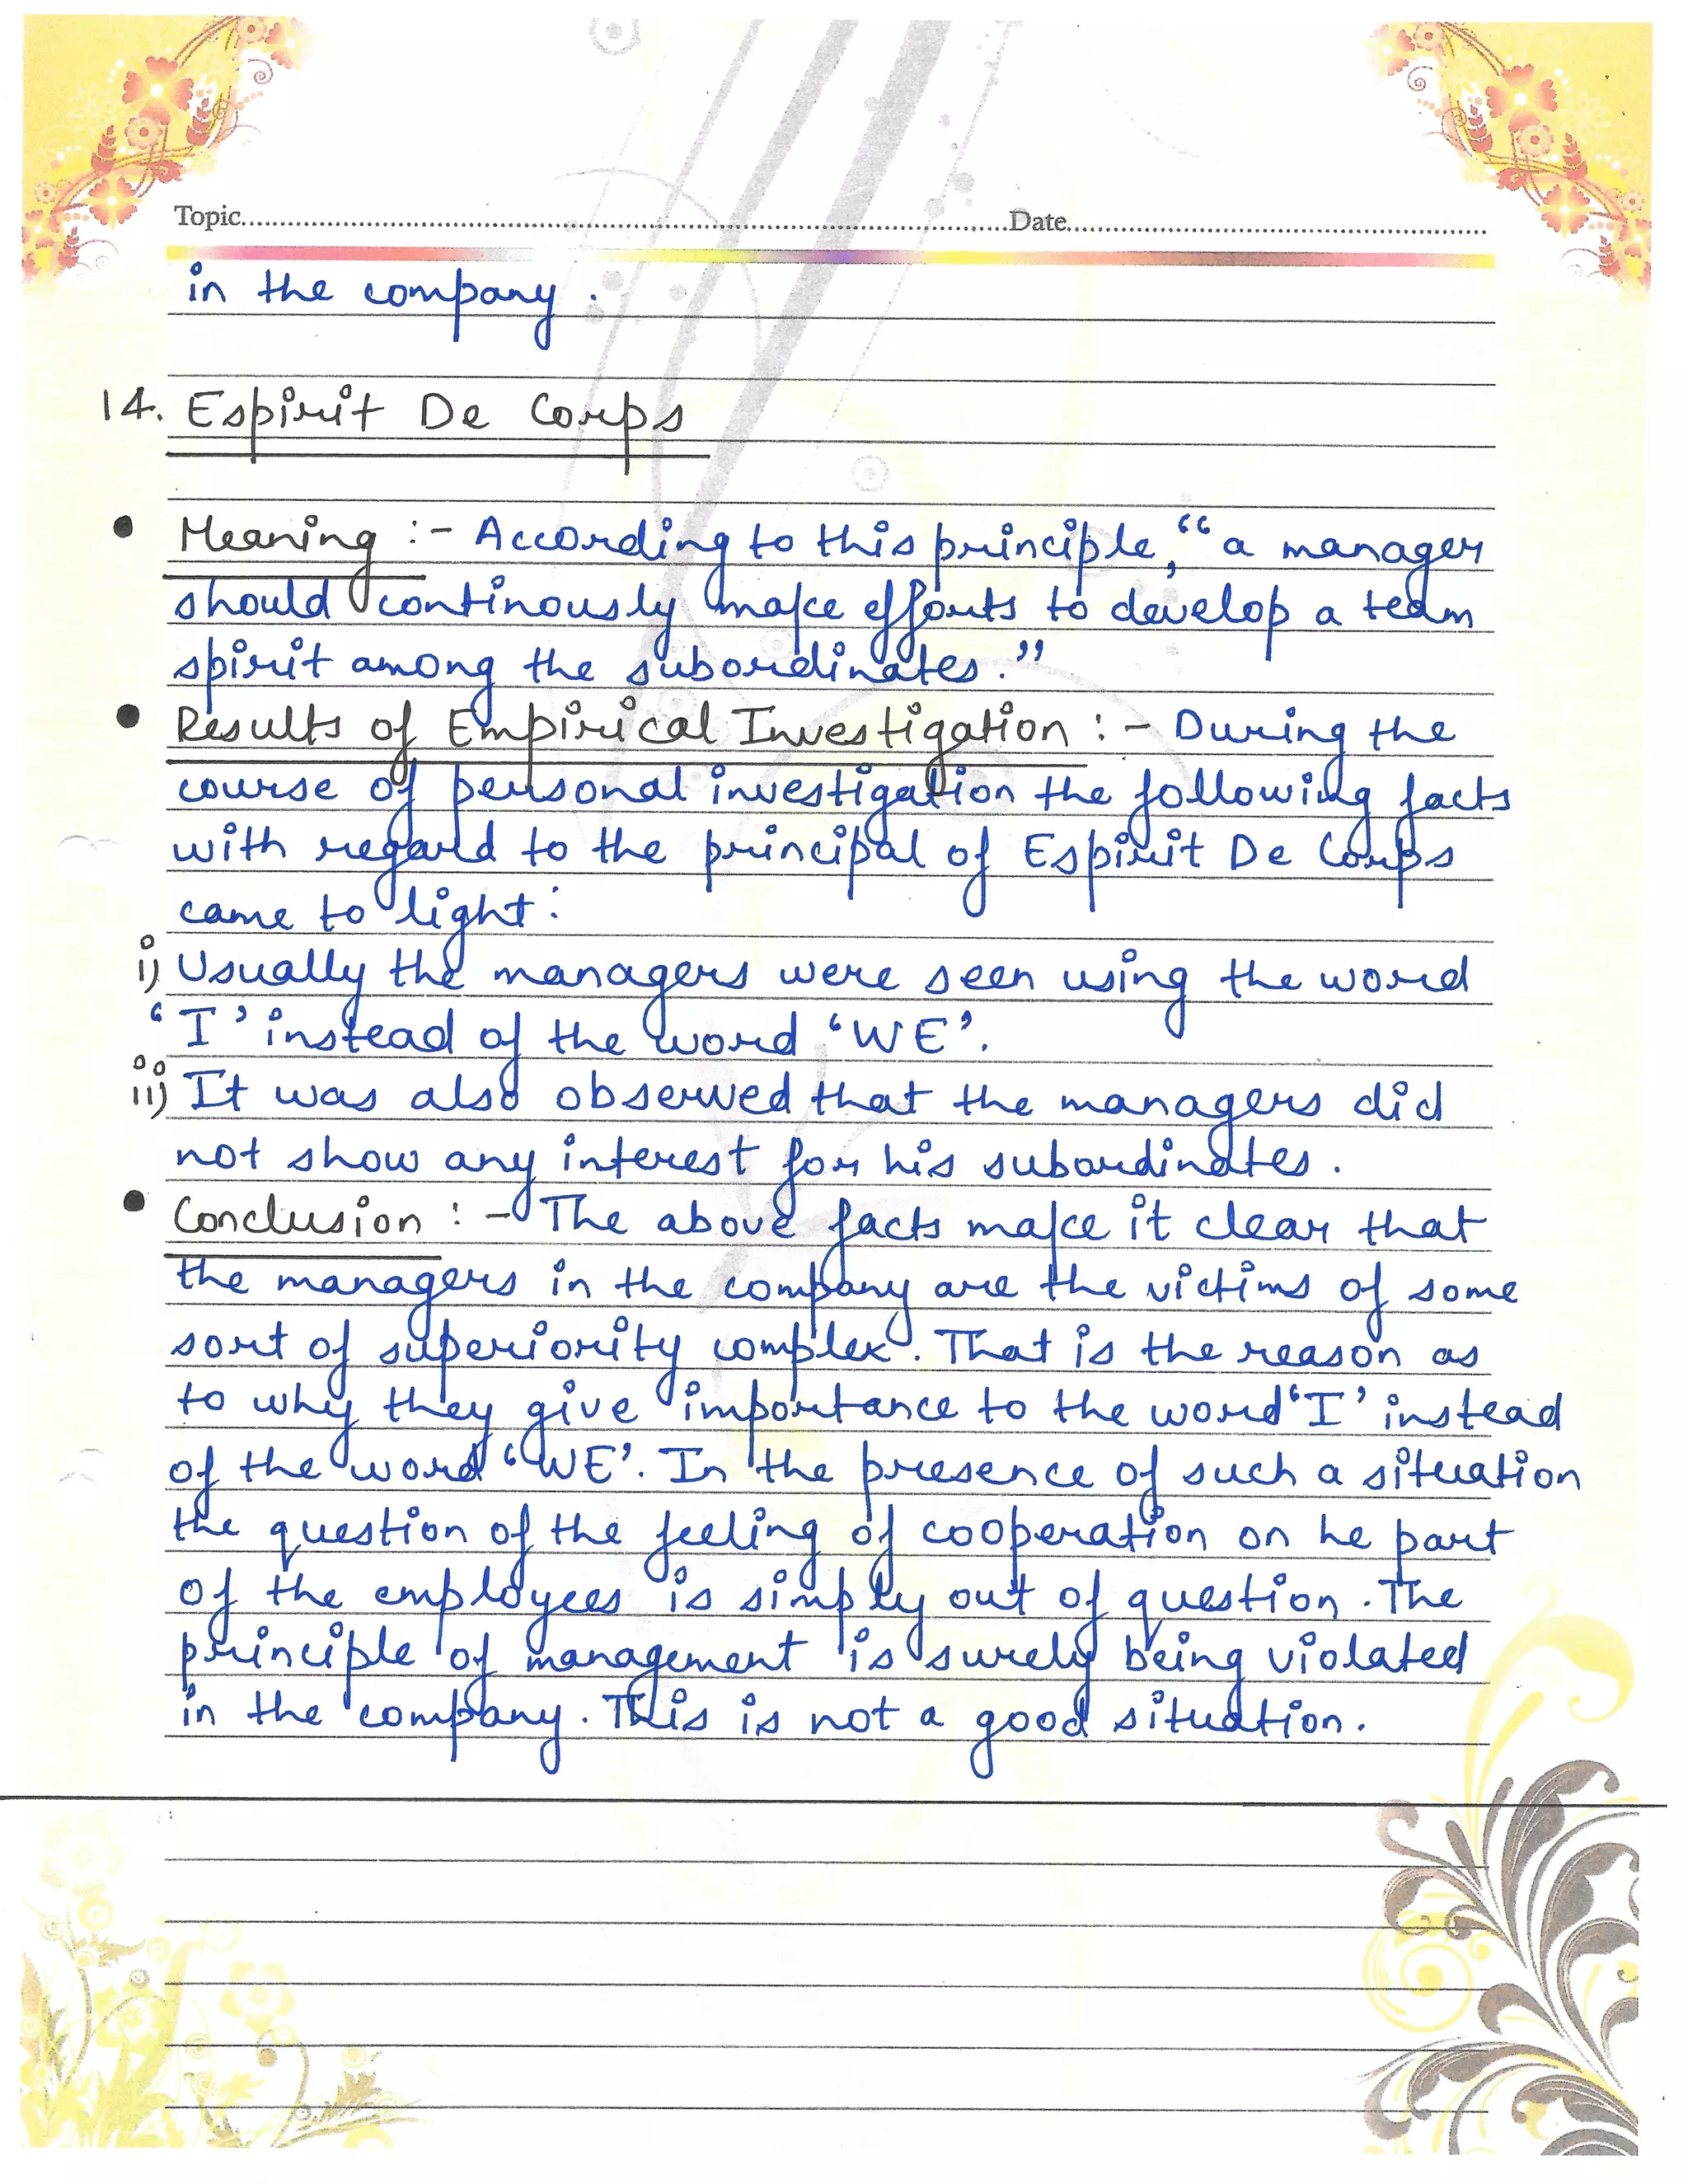 Topic.......... Date..........
in the company.
14. Espirit De Corps
• Meaning :- According to this principle, “a manager
should continously make efforts to develop a team
spirit among the subordinates.”
• Results of Empirical Investigation :- During the
course of personal investigation the following facts
with regard to the principal of Espirit De Corps
came to light:
i) Usually the managers were seen using the word
‘I’ instead of the word ‘WE’.
ii) It was also observed that the managers did
not show any interest for his subordinates.
• Conclusion :- The above facts make it clear that
the managers in the company are the victims of some
sort of superiority complex. That is the reason as
to why they give importance to the word ‘I’ instead
of the word ‘WE’. In the presence of such a situation
the question of the feeling of cooperation on he part
of the employees is simply out of question. The
principle of management is surely being violated
in the company. This is not a good situation.